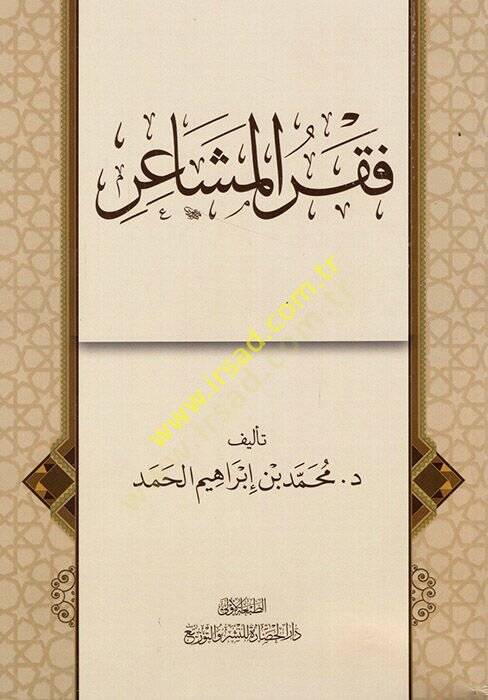 فَقْرُ المَشَاعِرِ
www.irsad.com.tr
تأليف
د. مُحَمَّد بْن إِبْرَاهِيم الحَمَد
الطبعة الأولى
دار الحضارة للنشر والتوزيع